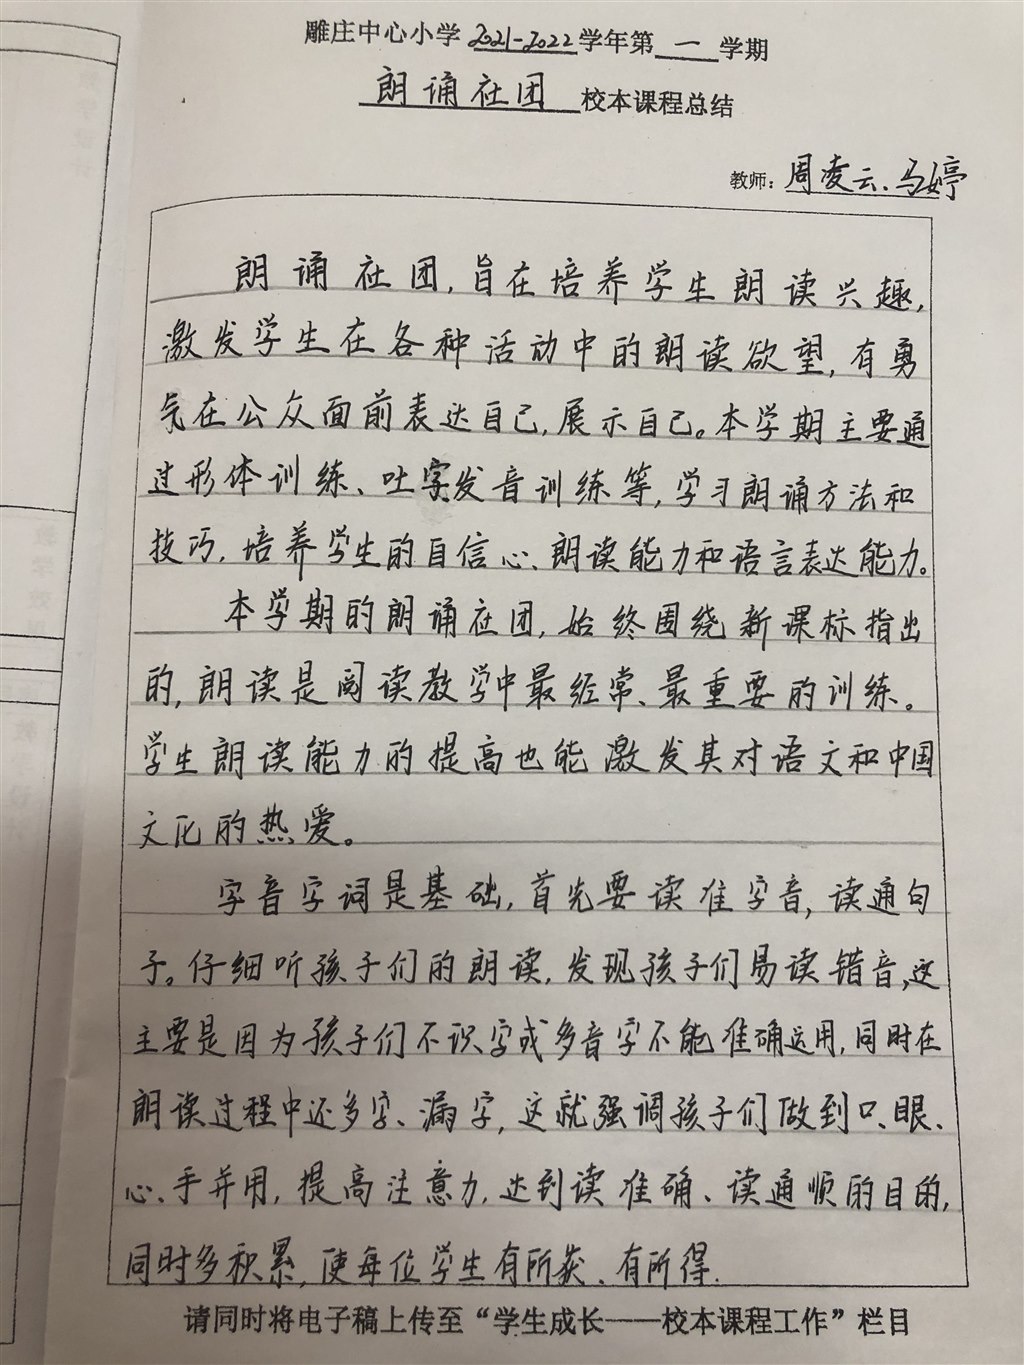 雕庄中心小学 2021-2022 学年第 一 学期
朗诵社团 校本课程总结
教师：周凌云、马婷
朗诵社团，旨在培养学生朗读兴趣，
激发学生在各种活动中的朗读欲望，有勇
气在公众面前表达自己，展示自己。本学期主要通
过形体训练、吐字发音训练等，学习朗诵方法和
技巧，培养学生的自信心、朗读能力和语言表达能力。
本学期的朗诵社团，始终围绕新课标指出
的，朗读是阅读教学中最经常、最重要的训练。
学生朗读能力的提高也能激发其对语文和中国
文化的热爱。
字音字词是基础，首先要读准字音，读通句
子。仔细听孩子们的朗读，发现孩子们易读错音，这
主要是因为孩子们不识字或多音字不能准确运用，同时在
朗读过程中还多字、漏字，这就强调孩子们做到口、眼、
心、手并用，提高注意力，达到读准确、读通顺的目的，
同时多积累，使每位学生有所获、有所得.
请同时将电子稿上传至“学生成长——校本课程工作”栏目